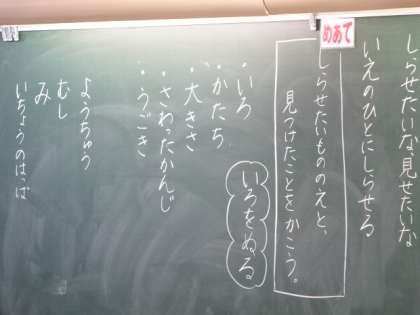 しらせたいな、見せたいな
いえのひとにしらせる
めあて
しらせたいもののえと、
見つけたことをかこう。
・いろ
いろをぬる
・かたち
・大きさ
・さわったかんじ
・うごき
ようちゅう
むし
み
いちょうのはっぱ